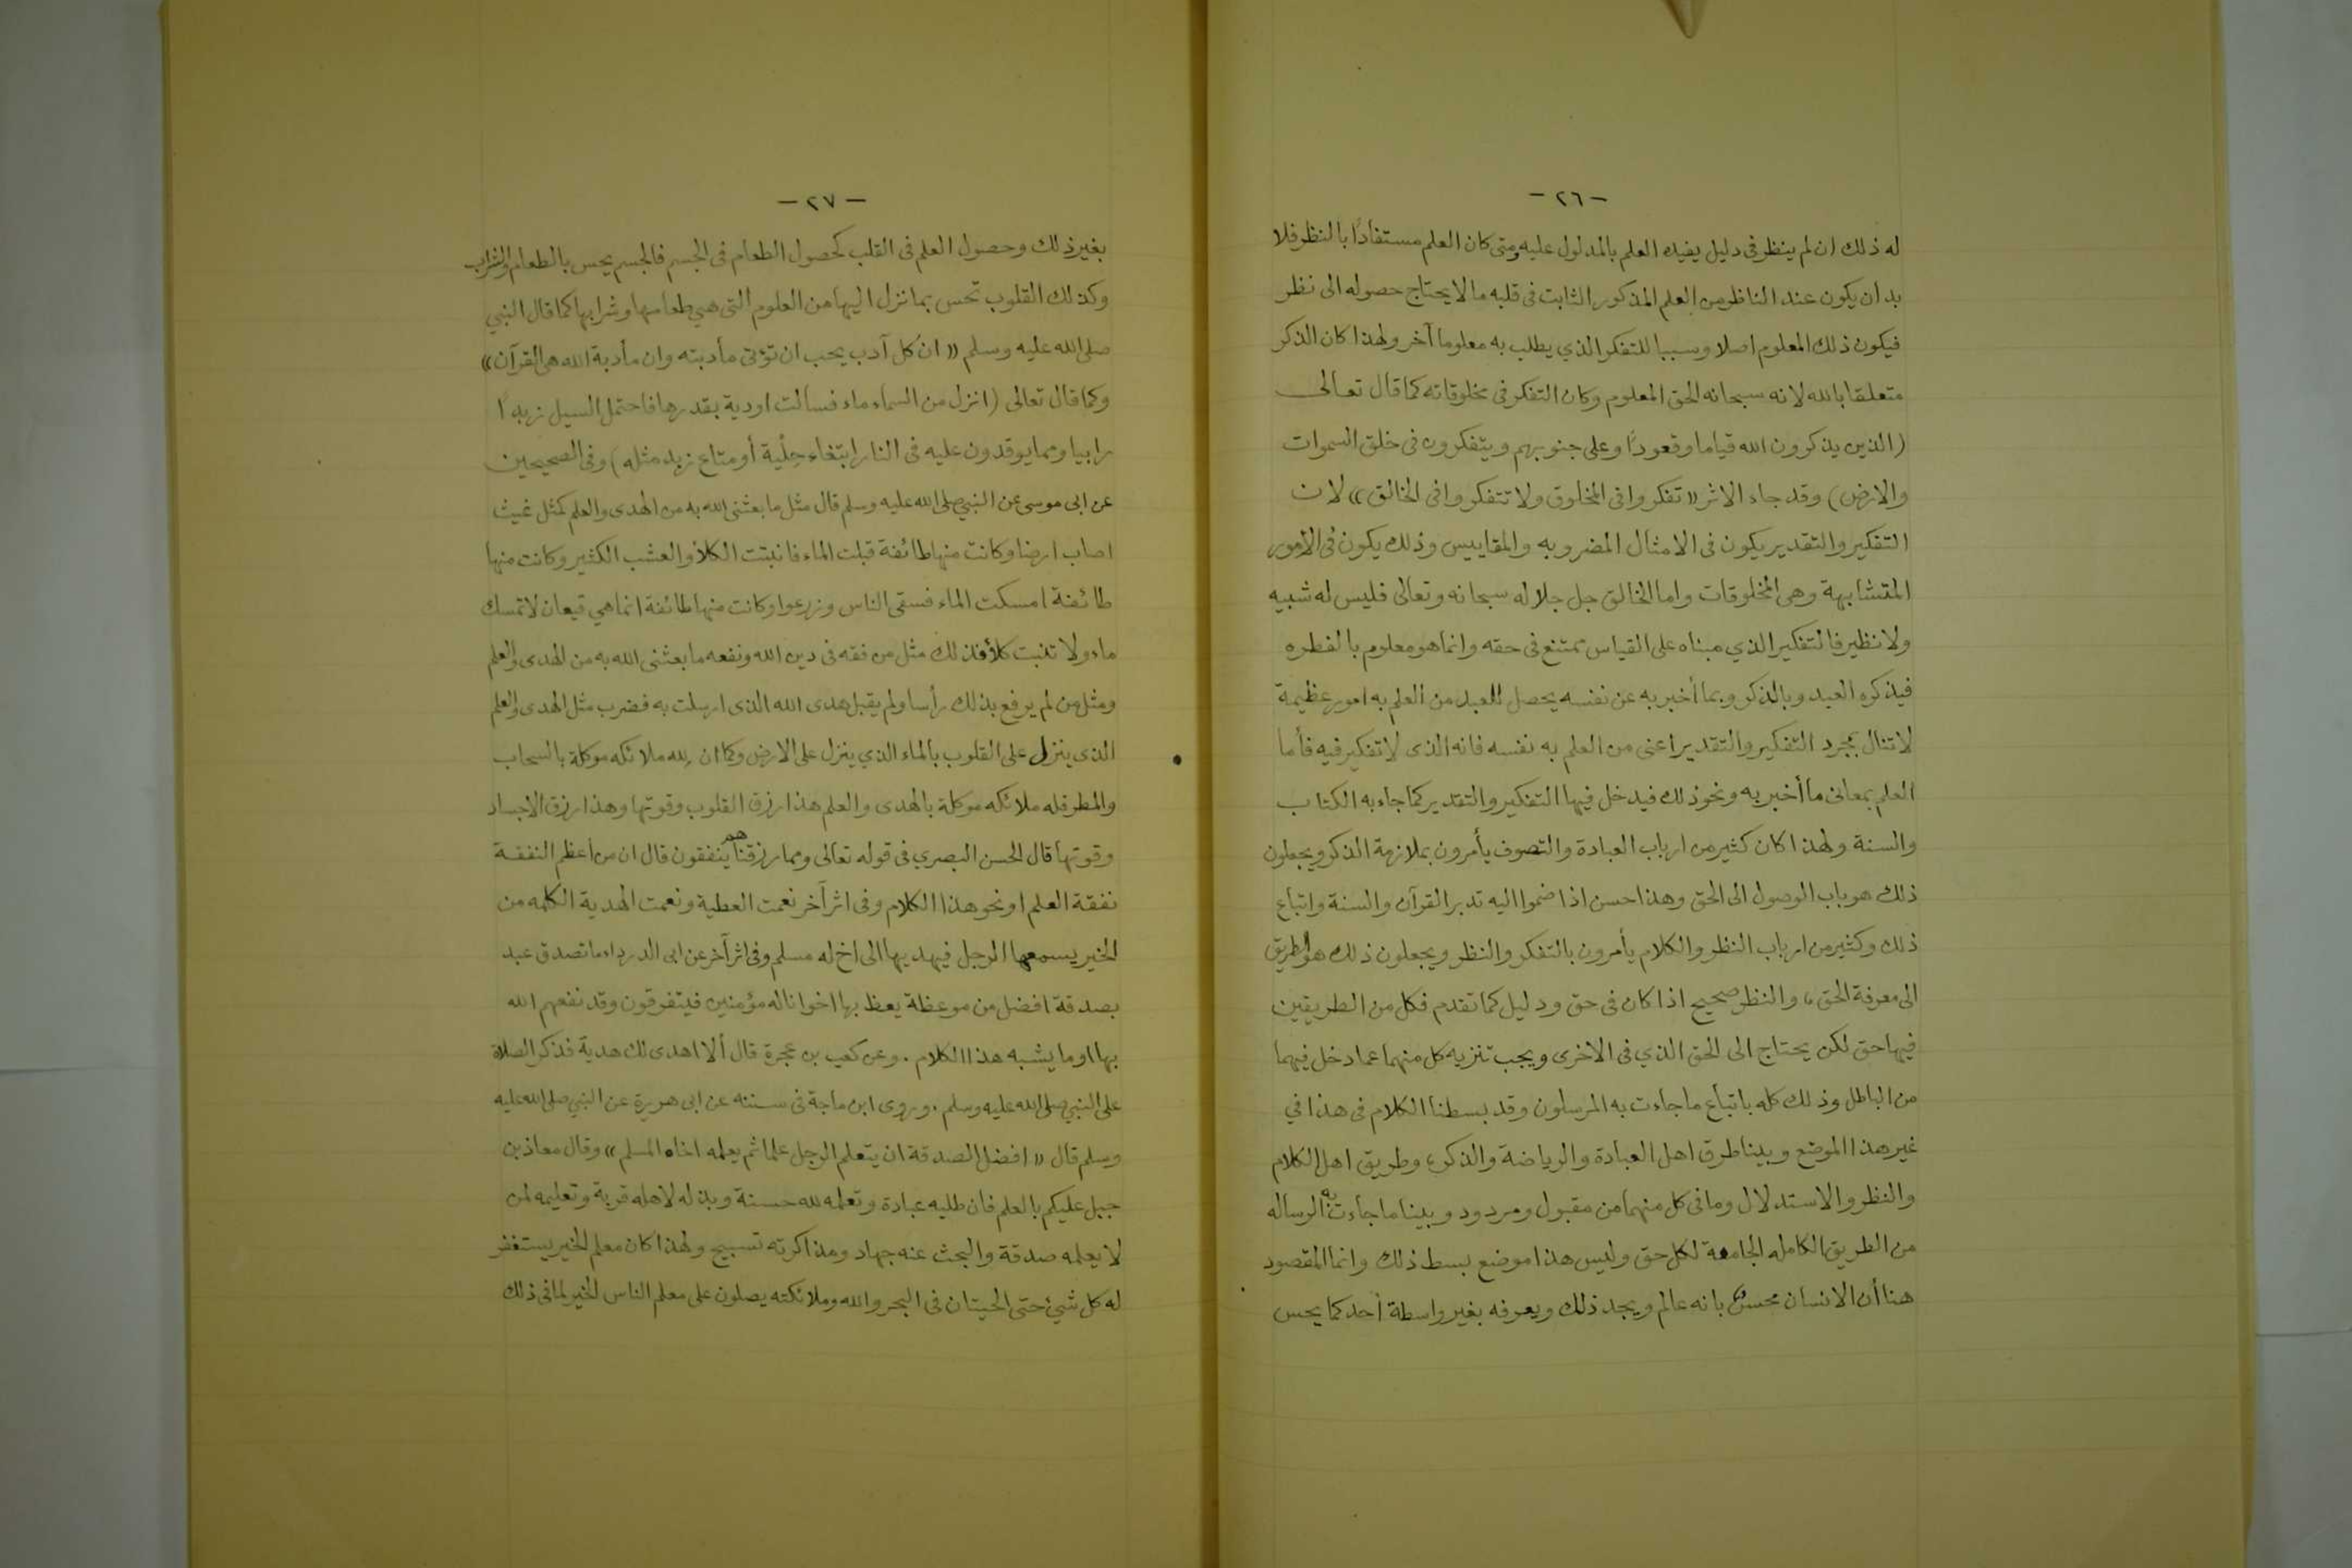 - ٢٦ -
له ذلك ان لم ينظر في دليل يفيده العلم بالمدلول عليه ومتى كان العلم مستفادًا بالنظر فلا
بد ان يكون عند الناظر من العلم المذكور الثابت في قلبه ما لا يحتاج حصوله الى نظر
فيكون ذلك المعلوم اصلا وسببا للتفكر الذي يطلب به معلوما آخر ولهذا كان الذكر
متعلقا بالله لانه سبحانه الحق المعلوم وكان التفكر في مخلوقاته كما قال تعالى
(الذين يذكرون الله قياما وقعودًا وعلى جنوبهم ويتفكرون في خلق السموات
والارض) وقد جاء الاثر «تفكروا في المخلوق ولا تتفكروا في الخالق» لان
التفكير والتقدير يكون في الامثال المضروبه والمقاييس وذلك يكون في الأمور
المتشابهة وهي المخلوقات واما الخالق جل جلاله سبحانه وتعالى فليس له شبيه
ولا نظير فالتفكير الذي مبناه على القياس ممتنع في حقه وانما هو معلوم بالفطره
فيذكره العبد وبالذكر وبما أخبر به عن نفسه يحصل للعبد من العلم به امور عظيمة
لا تنال بمجرد التفكير والتقدير اعنى من العلم به نفسه فانه الذى لا تفكير فيه فأما
العلم بمعانى ما أخبر به ونحو ذلك فيدخل فيها التفكير والتقدير كما جاء به الكتاب
والسنة ولهذا كان كثير من ارباب العبادة والتصوف يأمرون بملازمة الذكر ويجعلون
ذلك هو باب الوصول الى الحق وهذا حسن اذا ضموا اليه تدبر القرآن والسنة واتباع
ذلك وكثير من ارباب النظر والكلام يأمرون بالتفكر والنظر ويجعلون ذلك هو الطريق
الى معرفة الحق، والنظر صحيح اذا كان في حق ودليل كما تقدم فكل من الطريقين
فيها حق لكن يحتاج الى الحق الذي في الاخرى ويجب تنزيه كل منهما عما دخل فيهما
من الباطل وذلك كله باتباع ما جاءت به المرسلون وقد بسطنا الكلام في هذا في
غير هذا الموضع وبينا طرق اهل العبادة والرياضة والذكر، وطريق اهل الكلام
والنظر والاستدلال وما في كل منهما من مقبول ومردود وبينا ما جاءت به الرساله
من الطريق الكامله الجامعة لكل حق وليس هذا موضع بسط ذلك وانما المقصود
هنا أن الانسان محس بانه عالم ويجد ذلك ويعرفه بغير واسطة أحد كما يحس
- ٢٧ -
بغير ذلك وحصول العلم في القلب كحصول الطعام في الجسم فالجسم يحس بالطعام والشراب
وكذلك القلوب تحس بما نزل اليها من العلوم التى هي طعامها وشرابها كما قال النبي
صلى الله عليه وسلم «ان كل آدب يحب ان تؤتى مأدبته وان مأدبة الله هى القرآن»
وكما قال تعالى (انزل من السماء ماء فسالت اودية بقدرها فاحتمل السيل زبدًا
رابيا ومما يوقدون عليه في النار ابتغاء حِلْية أو متاع زبد مثله) وفى الصحيحين
عن ابى موسى عن النبي صلى الله عليه وسلم قال مثل ما بعثنى الله به من الهدى والعلم كمثل غيث
اصاب ارضا وكانت منها طائفة قبلت الماء فانبتت الكلأ والعشب الكثير وكانت منها
طائفة امسكت الماء فسقى الناس وزرعوا وكانت منها طائفة انما هي قيعان لا تمسك
ماء ولا تنبت كلأ فذلك مثل من فقه في دين الله ونفعه ما بعثنى الله به من الهدى والعلم
ومثل من لم يرفع بذلك رأسا ولم يقبل هدى الله الذى ارسلت به فضرب مثل الهدى والعلم
الذى ينزل على القلوب بالماء الذي ينزل على الارض وكما ان لله ملائكه موكلة بالسحاب
والمطر فله ملائكه موكلة بالهدى والعلم هذا رزق القلوب وقوتها وهذا رزق الاجساد
وقوتها قال الحسن البصري في قوله تعالى ومما رزقناهم ينفقون قال ان من اعظم النفقة
نفقة العلم او نحو هذا الكلام وفى اثر آخر نعمت العطية ونعمت الهدية الكلمه من
الخير يسمعها الرجل فيهديها الى اخ له مسلم وفى اثر آخر عن ابى الدرداء ما تصدق عبد
بصدقة افضل من موعظة يعظ بها اخوانا له مؤمنين فيتفرقون وقد نفعهم الله
بها او ما يشبه هذا الكلام. وعن كعب بن عجرة قال ألا اهدى لك هدية فذكر الصلاة
على النبي صلى الله عليه وسلم. وروى ابن ماجة في سننه عن ابى هريرة عن النبي صلى الله عليه
وسلم قال «افضل الصدقة ان يتعلم الرجل علما ثم يعلمه اخاه المسلم» وقال معاذ بن
جبل عليكم بالعلم فان طلبه عبادة وتعلمه لله حسنة وبذله لاهله قربة وتعليمه لمن
لا يعلمه صدقة والبحث عنه جهاد ومذاكرته تسبيح ولهذا كان معلم الخير يستغفر
له كل شيئ حتى الحيتان في البحر والله وملائكته يصلون على معلم الناس الخير لما في ذلك